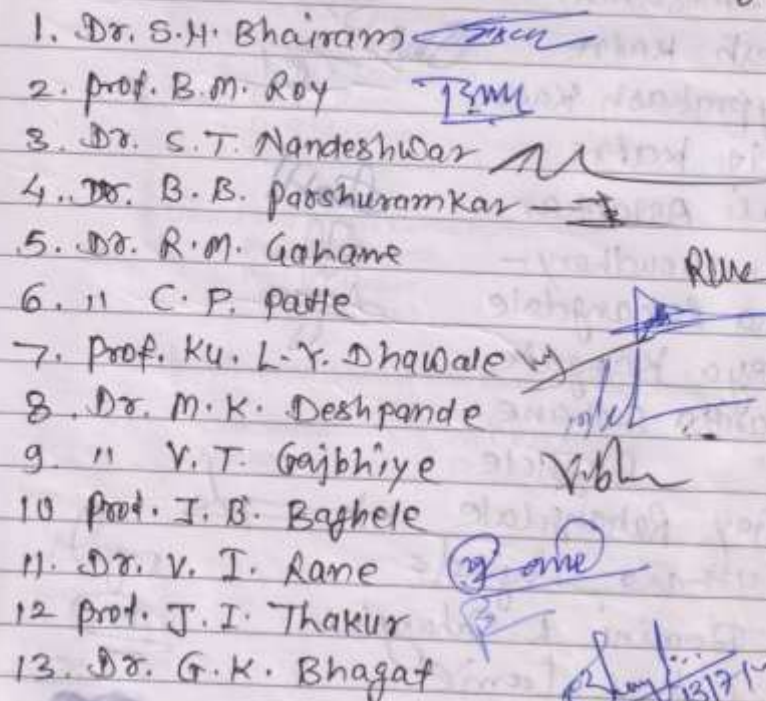 1. Dr. S.H. Bhairam
2. prof. B.M. Roy
3. Dr. S.T. Nandeshwar
4. Dr. B.B. parshuramkar
5. Dr. R.M. Gahane
6. 11 C.P. patle
7. Prof. Ku. L.Y. Dhawale
8. Dr. M.K. Deshpande
9. 11 V.T. Gajbhiye
10 prof. J.B. Baghele
11. Dr. V.I. Rane
12 prof. J.I. Thakur
13. Dr. G.K. Bhagat